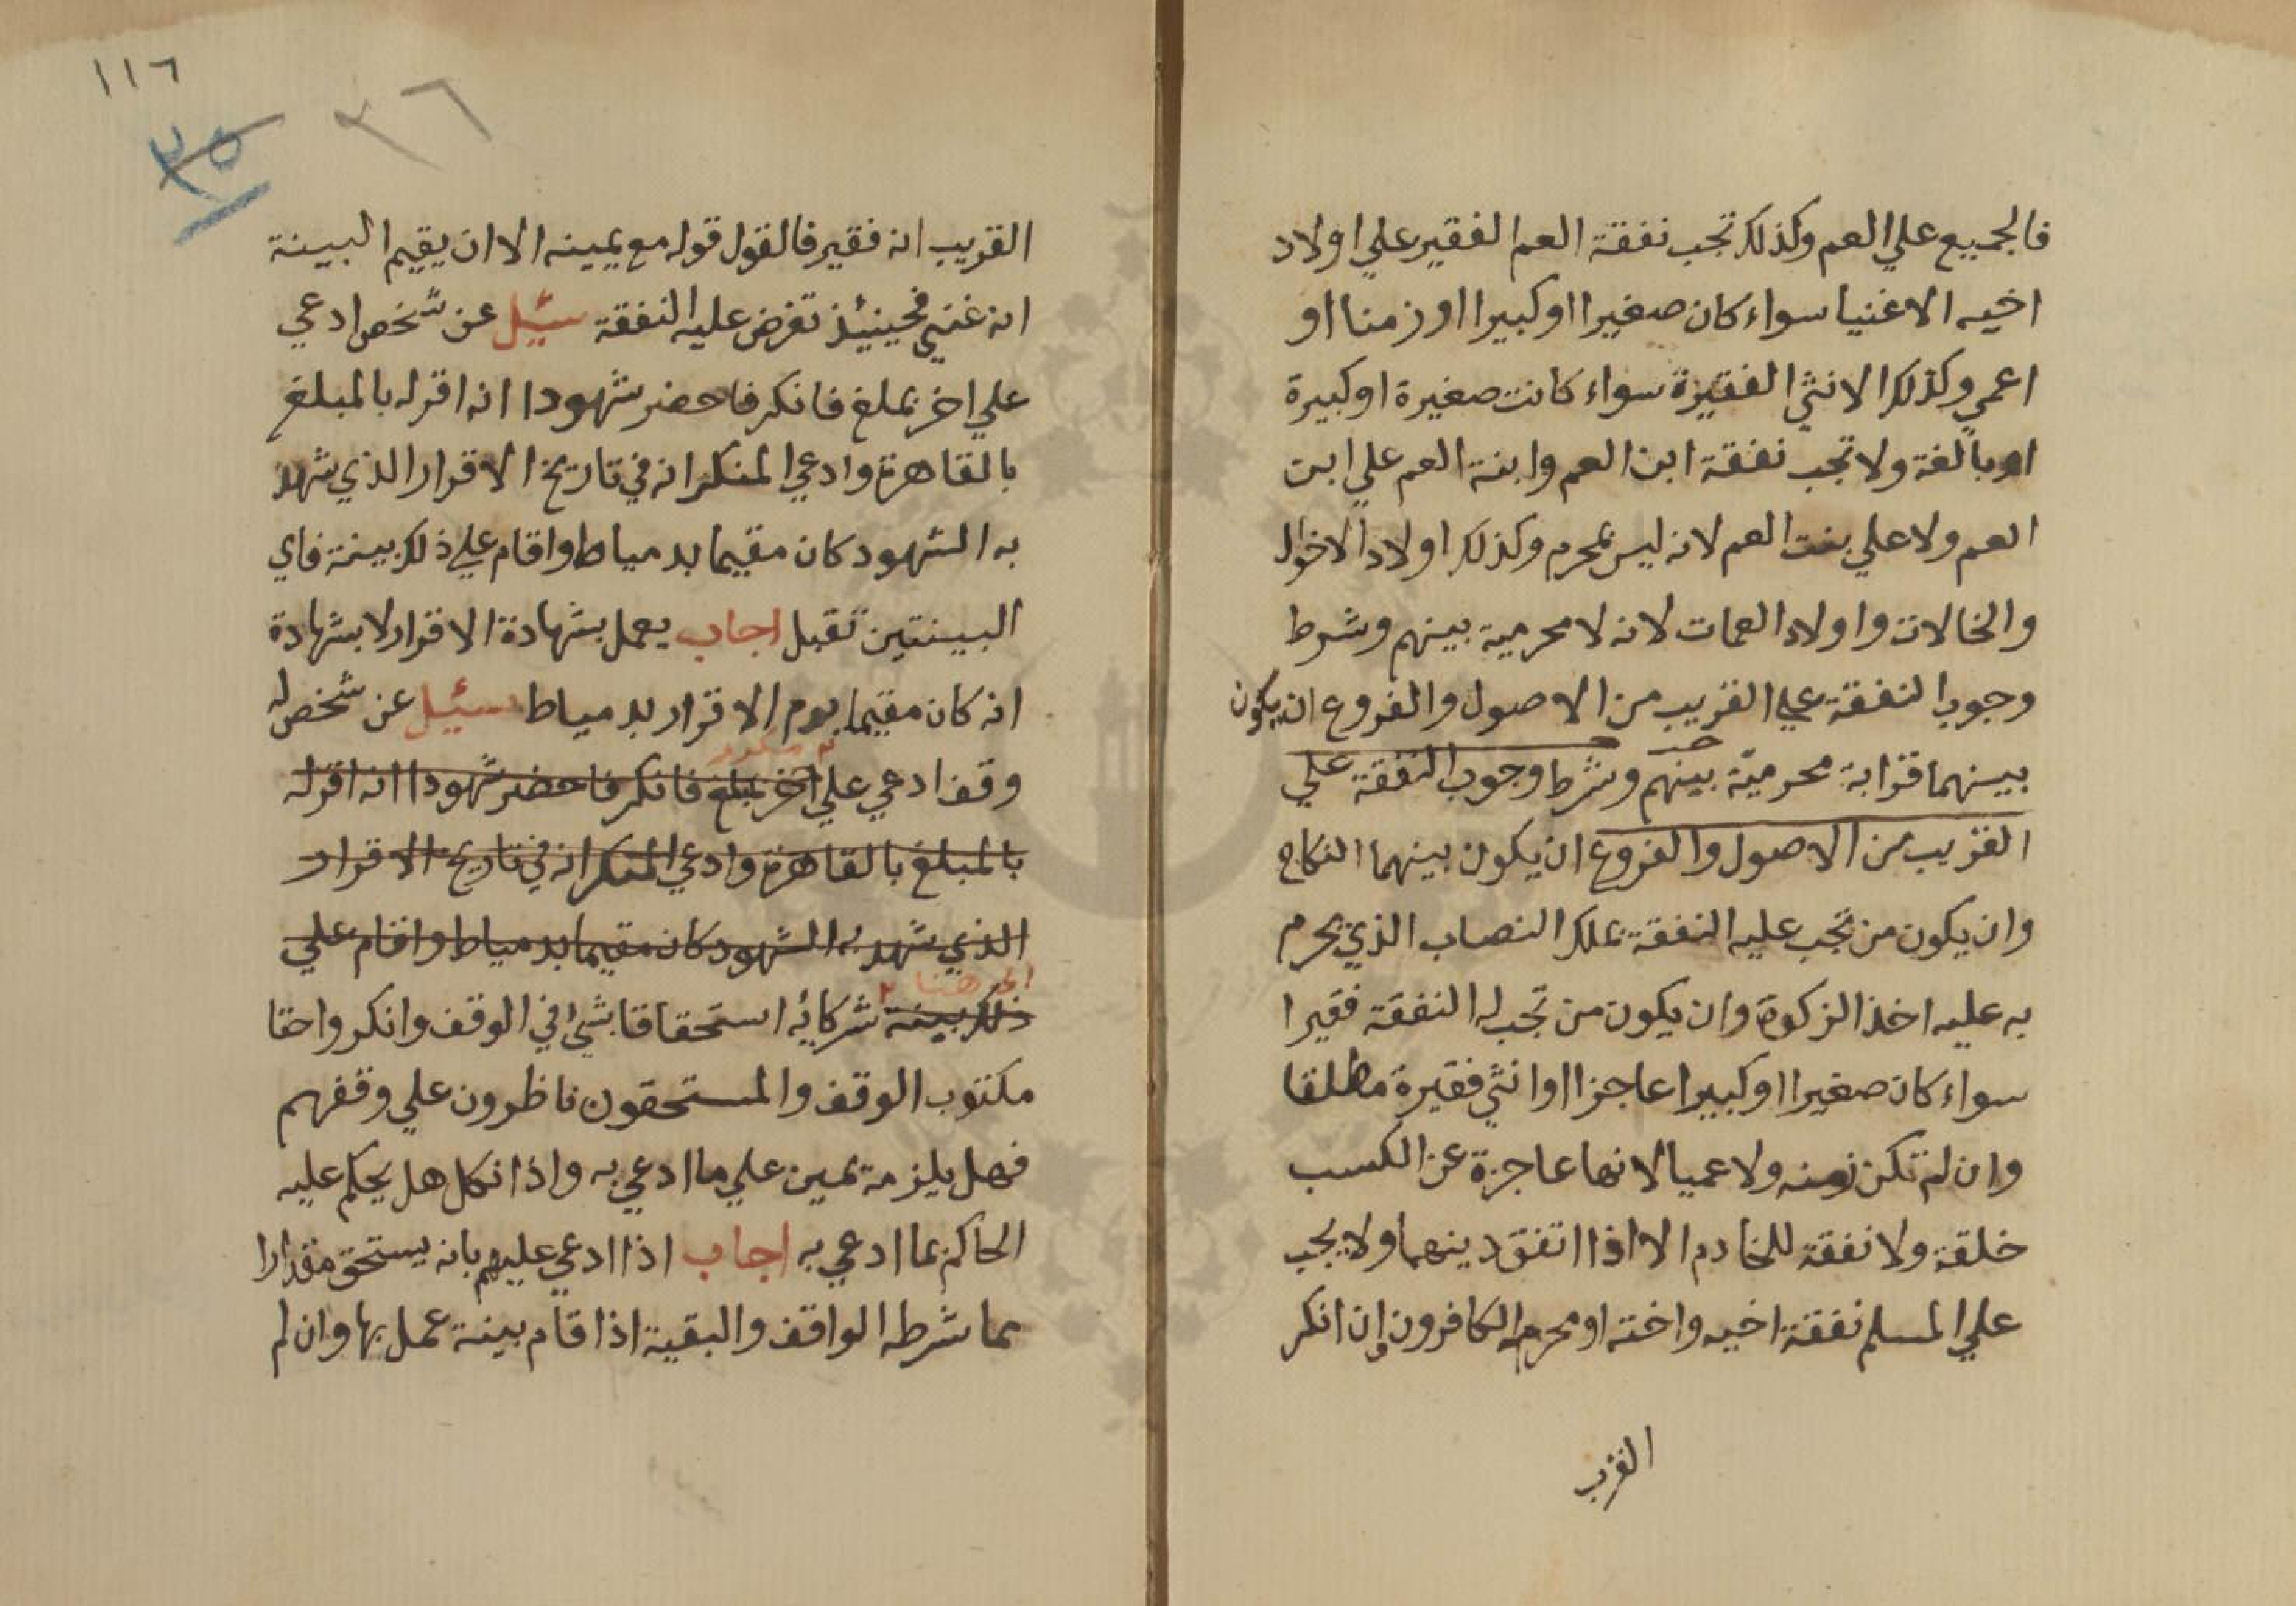 فالجميع علي العم وكذلك تجب نفقة العم الفقير علي اولاد
اخيه الاغنيا سواء كان صغيرا او كبيرا او زمنا او
اعمي وكذلك الانثي الفقيرة سواء كانت صغيرة او كبيرة
او بالغة ولا تجب نفقة ابن العم وابنة العم علي ابن
العم ولا علي بنت العم لانه ليس بمحرم وكذلك اولاد الاخوال
والخالات واولاد العمات لانه لا محرمية بينهم وشرط
وجوب النفقة علي القريب من الاصول والفروع ان يكون
بينهما قرابة محرمية بينهم وشرط وجوب النفقة علي
القريب من الاصول والفروع ان يكون بينهما النكاح
وان يكون من تجب عليه النفقة بملك النصاب الذي يحرم
به عليه اخذ الزكوة وان يكون من تجب له النفقة فقيرا
سواء كان صغيرا او كبيرا عاجزا او انثي فقيرة مطلقا
وان لم تكن زمنه ولا عميا لانها عاجزة عن الكسب
خلقة ولا نفقة للخادم الا اذا اتفق دينهما ولا يجب
علي المسلم نفقة اخيه واخته او محرمه الكافرون وان انكر
القريب
١١٦
٣٦
٣٥
القريب انه فقير فالقول قوله مع يمينه الا ان يقيم البينة
انه غني فحينيئذ تفرض عليه النفقة سئيل عن شخص ادعي
علي اخر بملغ فانكر فاحضر شهودا انه اقر له بالمبلغ
بالقاهرة وادعي المنكر انه في تاريخ الاقرار الذي شهد
به الشهود كان مقيما بدمياط واقام علي ذلك بينة فاي
البينتين تقبل اجاب يعمل بشهادة الاقرار لا بشهادة
انه كان مقيما يوم الاقرار بدمياط سئيل عن شخص له
وقف ادعي علي اخر بملغ فانكر فاحضر شهودا انه اقر له
بالمبلغ بالقاهرة وادعي المنكر انه في تاريخ الاقرار
الذي شهد به الشهود كان مقيما بدمياط واقام علي
ذلك بينة شركائه استحقاقا بشئ في الوقف وانكروا حقا
مكتوب الوقف والمستحقون ناظرون علي وقفهم
فهل يلزمة يمين علي ما ادعي به واذا نكل هل يحكم عليه
الحاكم بما ادعي به اجاب اذا ادعي عليهم بانه يستحق مقدارا
مما شرطه الواقف والبقية اذا قام بينة عمل بها وان لم